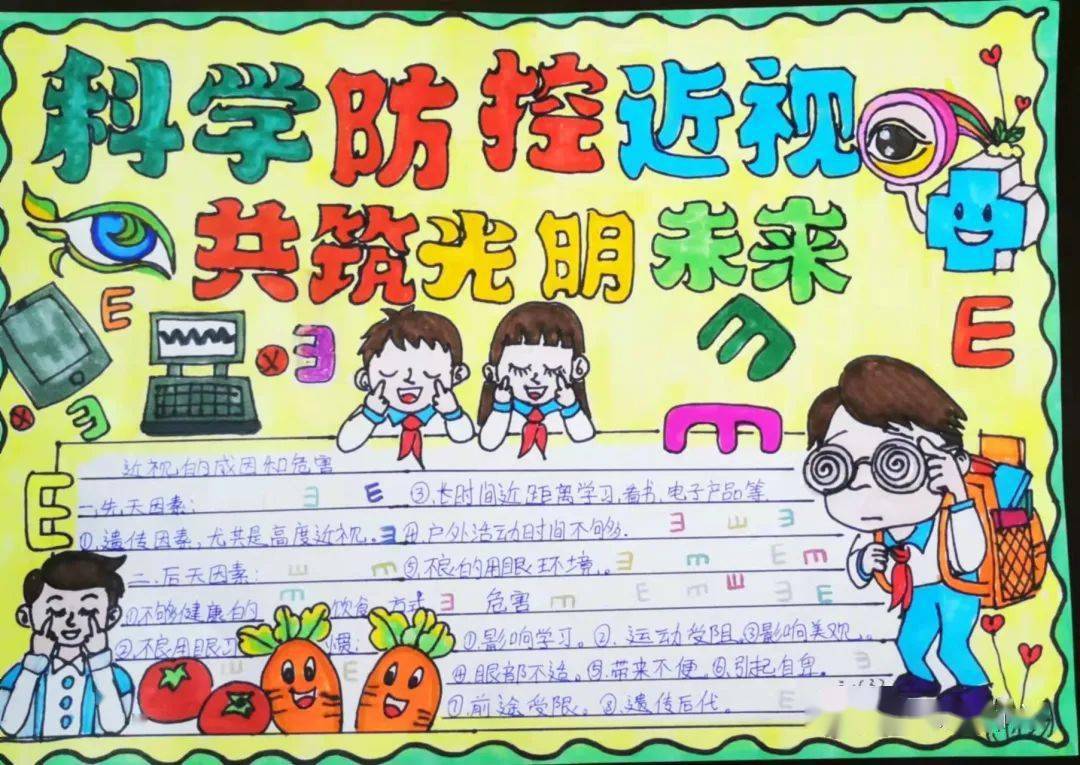 科学防控近视
共筑光明未来
近视的成因和危害
一.先天因素:
①.遗传因素,尤其是高度近视。
二.后天因素:
①不够健康的饮食方式
②不良用眼习惯:
③.长时间近距离学习.看书.电子产品等.
④.户外活动时间不够.
⑤.不良的用眼环境.
危害
①.影响学习。②.运动受阻.③影响美观。
④眼部不适。⑤.带来不便.⑥.引起自卑.
⑦.前途受限。⑧.遗传后代。